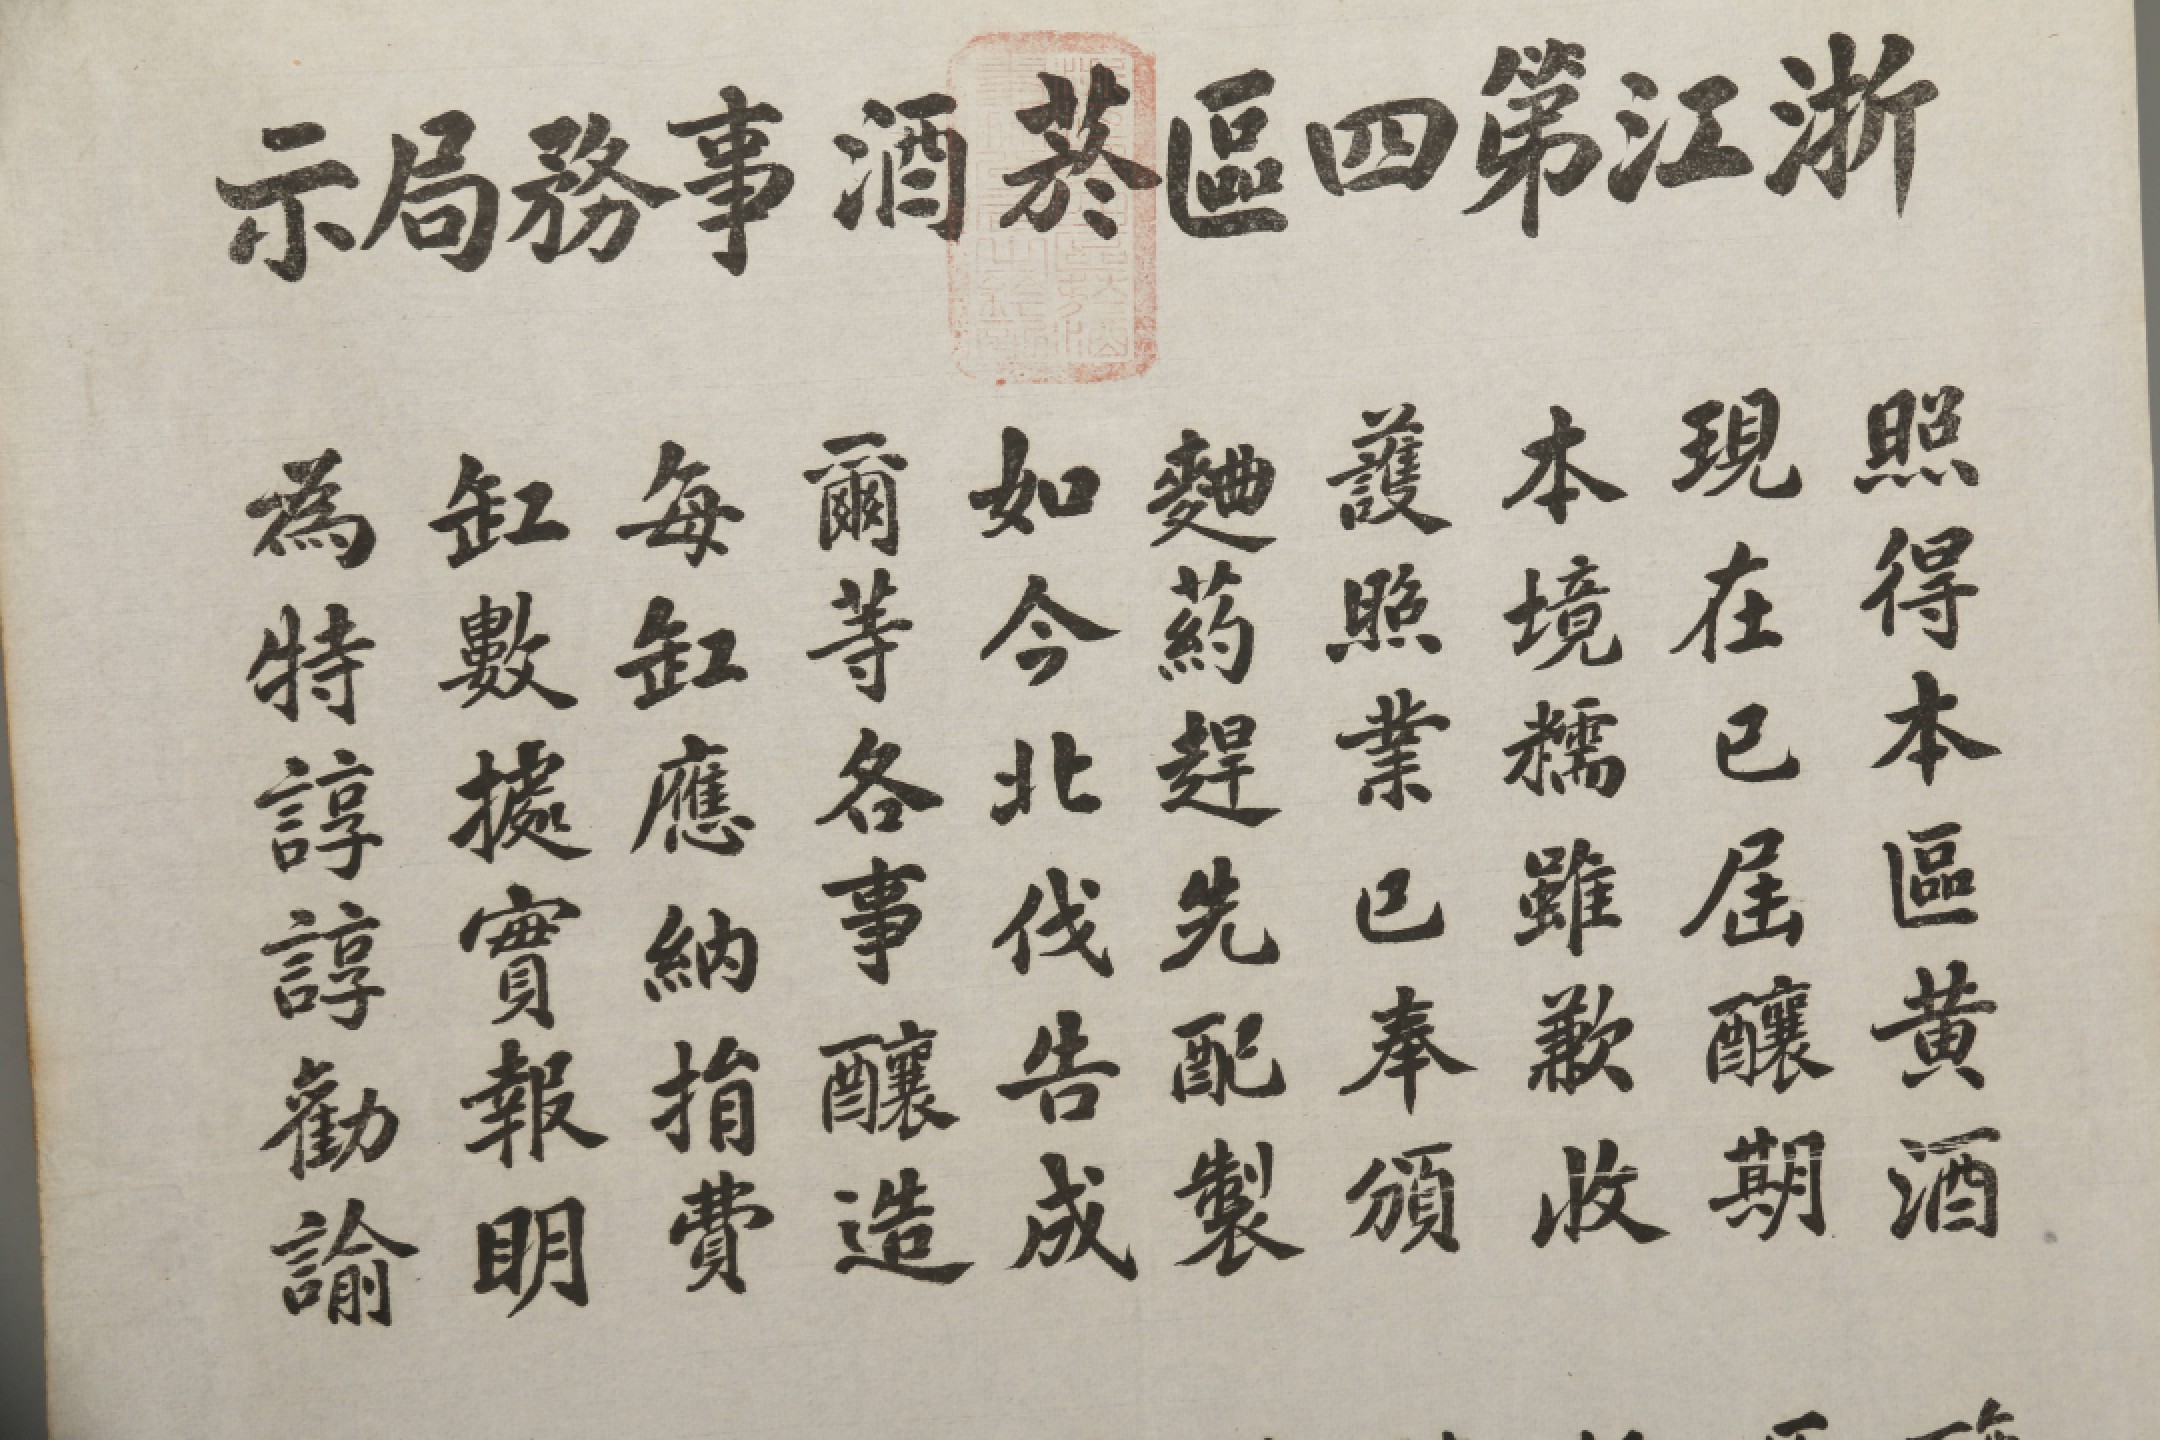 浙江第四區菸酒事務局示
照得本區黃酒
現在已屆釀期
本境糯雖歉收
護照業已奉頒
麯葯趕先配製
如今北伐告成
爾等各事釀造
每缸應納捐費
缸數據實報明
為特諄諄勸諭